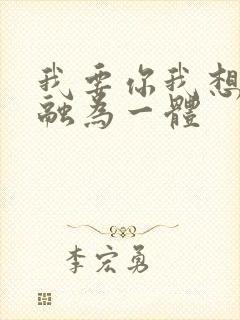 我要你我想
融為一體
李宏勇